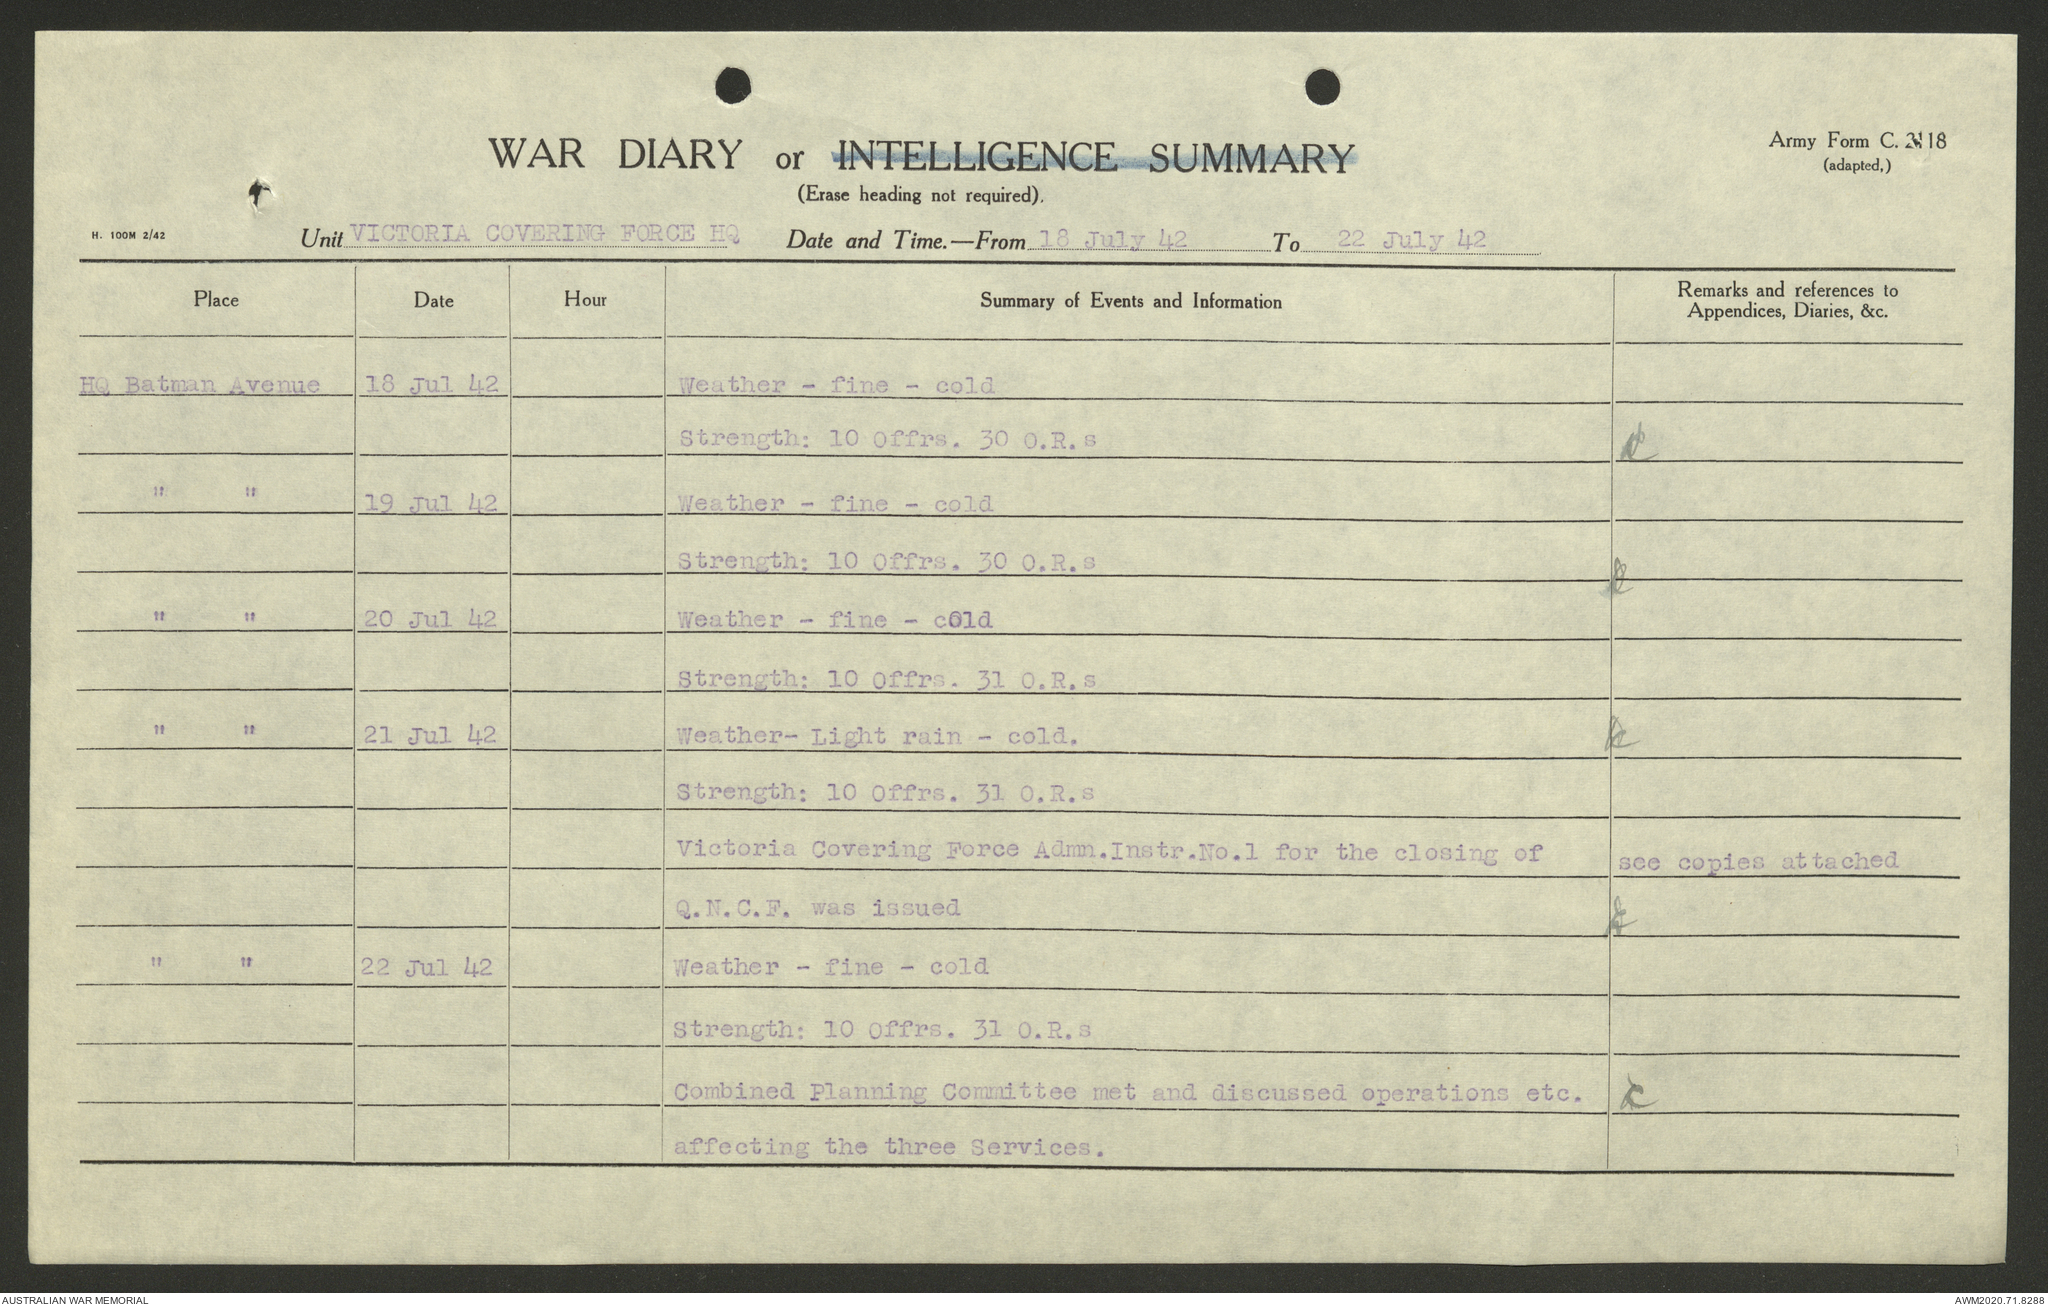 WAR DIARY or INTELLIGENCE SUMMARY
(Erase heading not required).
Army Form C. 2118
(adapted,)
H. 100M 2/42
Unit VICTORIA COVERING FORCE HQ Date and Time.—From 18 July 42 To 22 July 42
Place Date Hour Summary of Events and Information Remarks and references to
Appendices, Diaries, &c.
HQ Batman Avenue 18 Jul 42 Weather - fine - cold
Strength: 10 Offrs. 30 O.R.s
" " 19 Jul 42 Weather - fine - cold
Strength: 10 Offrs. 30 O.R.s
" " 20 Jul 42 Weather - fine - cold
Strength: 10 Offrs. 31 O.R.s
" " 21 Jul 42 Weather- Light rain - cold.
Strength: 10 Offrs. 31 O.R.s
Victoria Covering Force Admn.Instr.No.1 for the closing of see copies attached
Q.N.C.F. was issued
" " 22 Jul 42 Weather - fine - cold
Strength: 10 Offrs. 31 O.R.s
Combined Planning Committee met and discussed operations etc.
affecting the three Services.
AUSTRALIAN WAR MEMORIAL AWM2020.71.8288